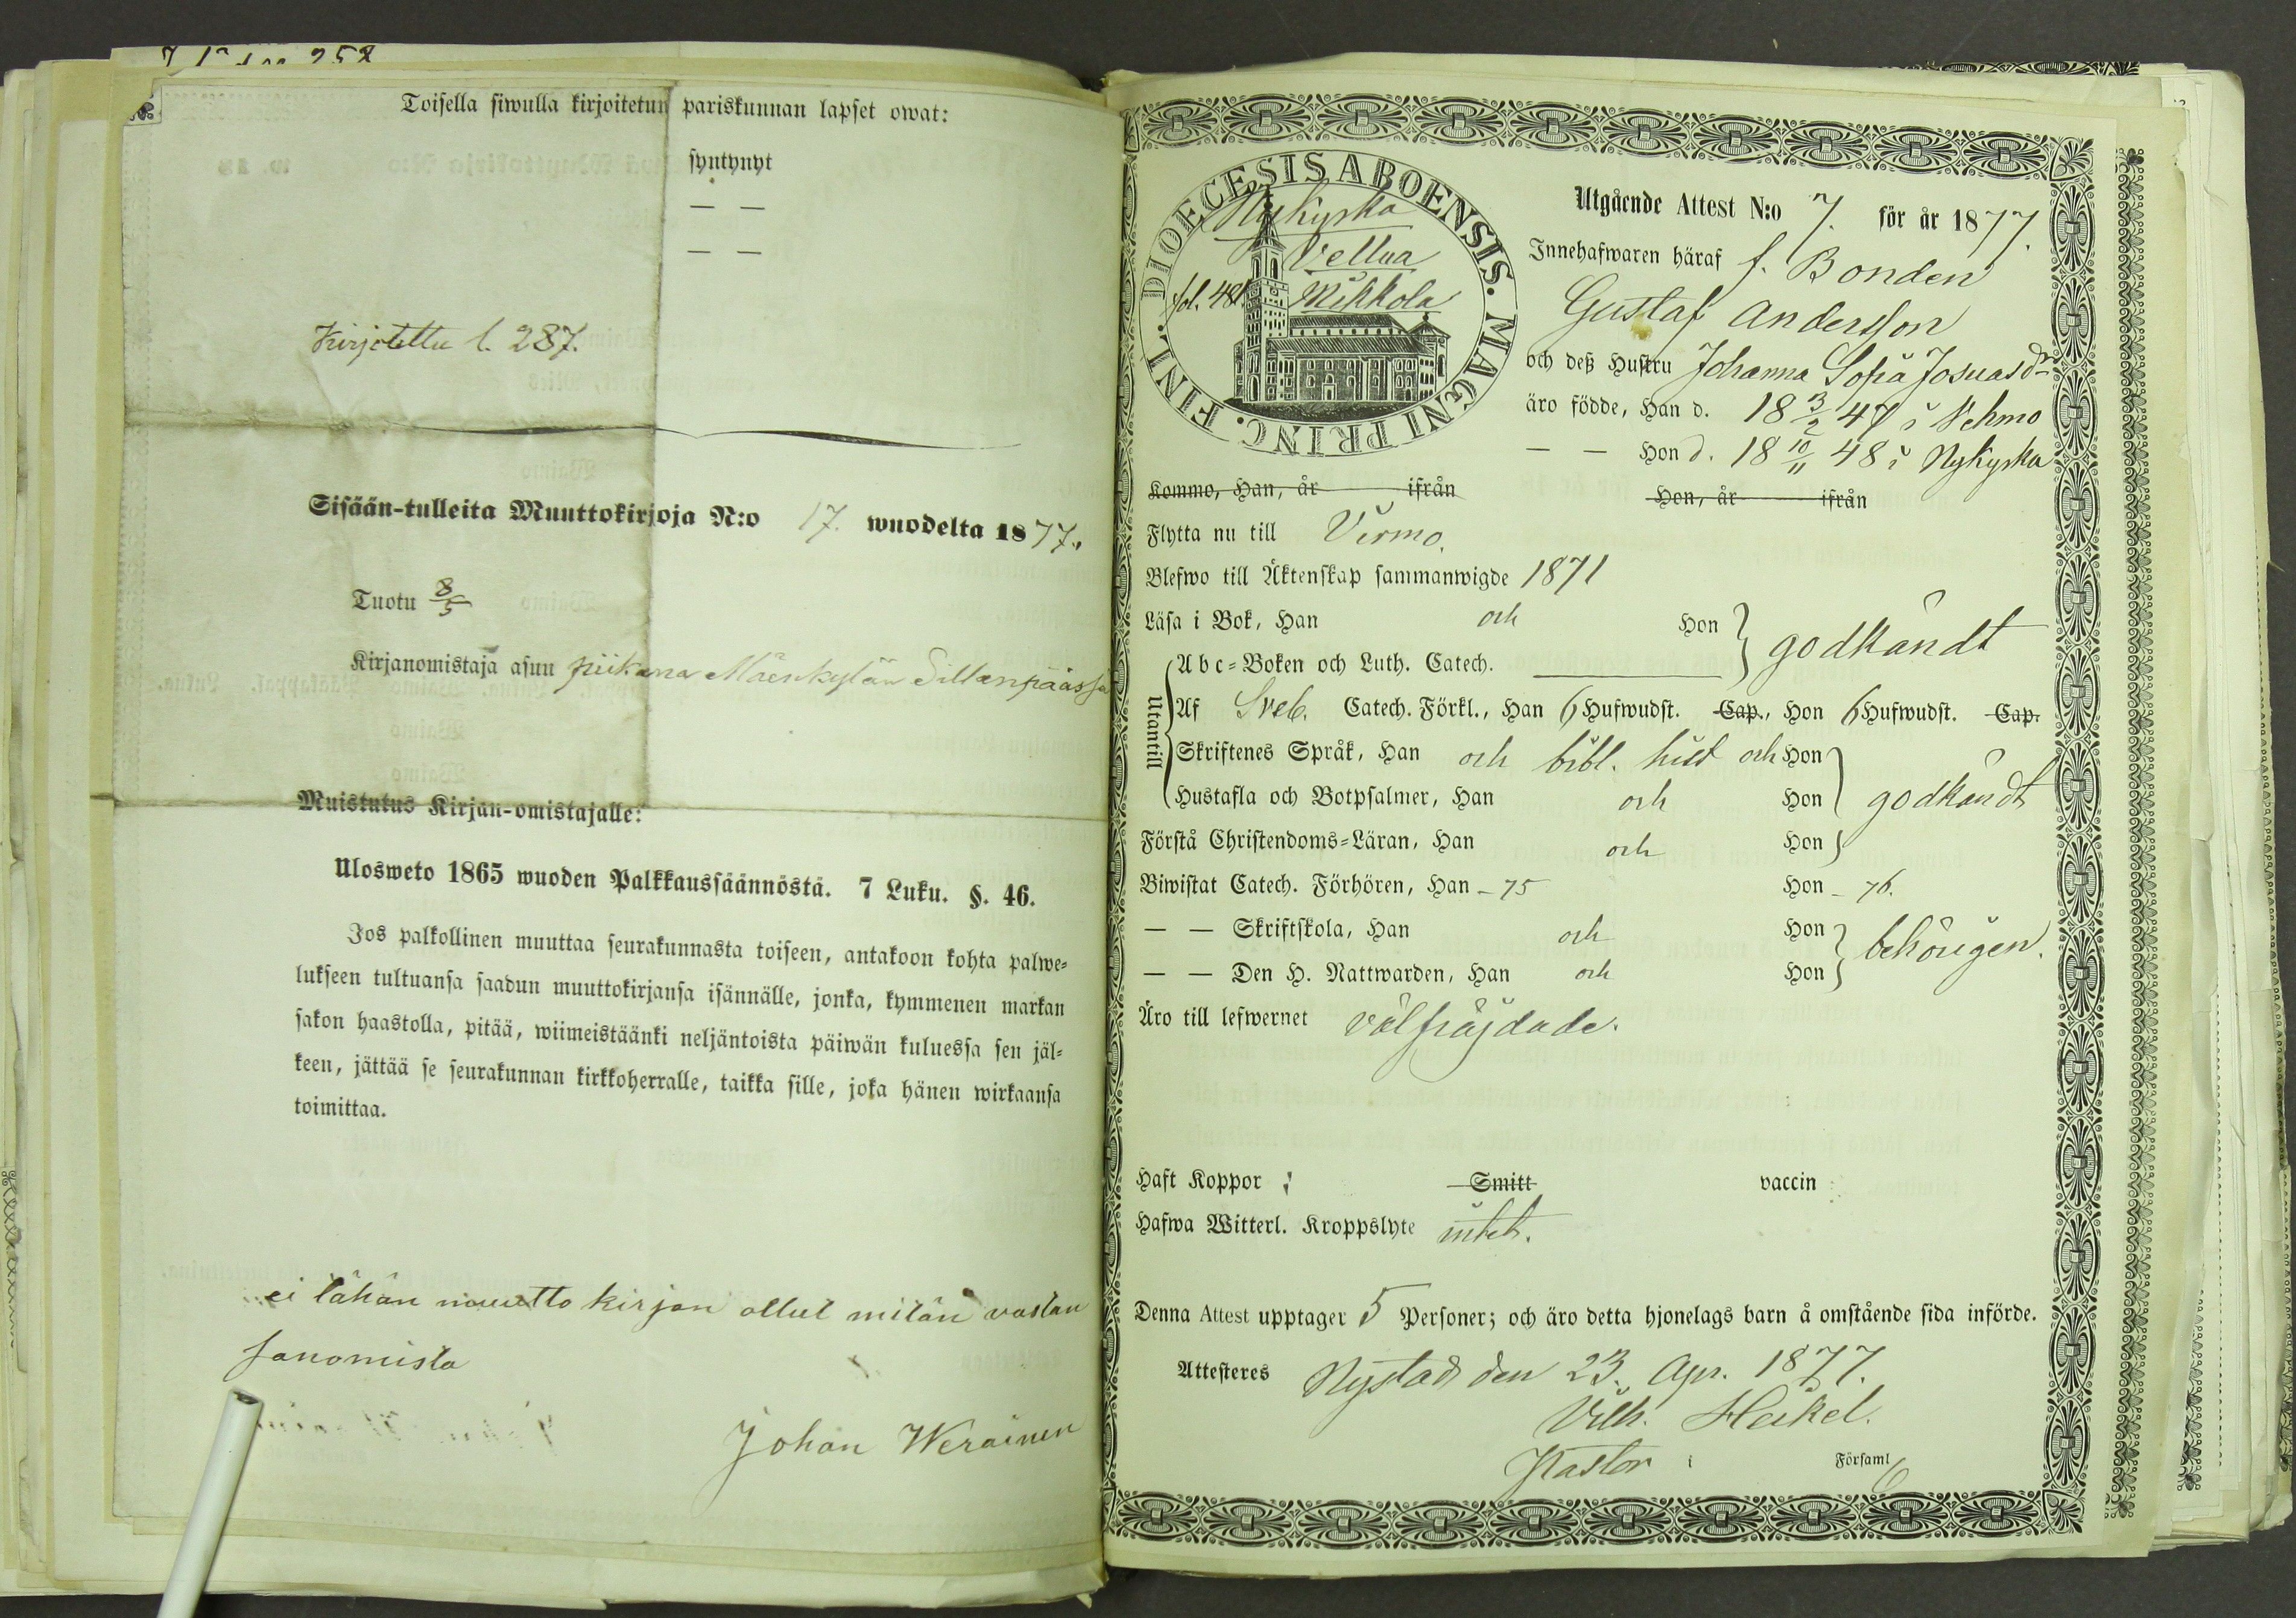 Toisella siwulla kirjoitetun pariskunnan lapset owat:
syntynyt
— —
— —
Kirjotettu l. 287.
Sisään-tulleita Muuttokirjoja N:o 17. wuodelta 1877.
Tuotu 8/5
Kirjanomistaja asuu piikana Mäenkylän Sillanpäässä
Muistutus Kirjan-omistajalle:
Ulosweto 1865 wuoden Palkkaussäännöstä. 7 Luku. §. 46.
Jos palkollinen muuttaa seurakunnasta toiseen, antakoon kohta palwe-
lukseen tultuansa saadun muuttokirjansa isännälle, jonka, kymmenen markan
sakon haastolla, pitää, wiimeistäänki neljäntoista päiwän kuluessa sen jäl-
keen, jättää se seurakunnan kirkkoherralle, taikka sille, joka hänen wirkaansa
toimittaa.
ei tähän muutto kirjan ollut mitän vastan
sanomista
Johan Werainen
DIOECESIS ABOENSIS. MAGNI PRINC. FINL.
Nykyrka
Vellua
fol. 481. Mikkola
Utgående Attest N:o 7. för år 1877.
Innehafwaren häraf f. Bonden
Gustaf Andersson
och deß Hustru Johanna Sofia Josuasdr
äro födde, Han d. 18 13/2 47 i Vehmo
— — Hon d. 18 10/11 48 i Nykyrka
Kommo, Han, år ifrån Hon, år ifrån
Flytta nu till Virmo.
Blefwo till Äktenskap sammanwigde 1871
Läsa i Bok, Han och Hon godkändt
Abc-Boken och Luth. Catech.
Utantill
Af Sveb. Catech. Förkl., Han 6 Hufwudst. Cap., Hon 6 Hufwudst. Cap.
Skriftenes Språk, Han och bibl. hist och Hon
Hustafla och Botpsalmer, Han och Hon godkändt
Förstå Christendoms-Läran, Han och Hon
Biwistat Catech. Förhören, Han – 75 Hon – 76.
— — Skriftskola, Han och Hon behörigen.
— — Den H. Nattwarden, Han och Hon
Äro till lefwernet välfräjdade.
Haft Koppor Smitt vaccin
Hafwa Witterl. Kroppslyte intet.
Denna Attest upptager 5 Personer; och äro detta hjonelags barn å omstående sida införde.
Attesteres Nystad den 23. Apr. 1877.
Vilh. Heikel.
Pastor i Församl